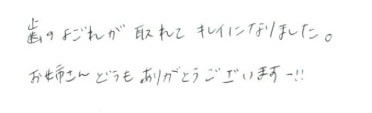 歯のよごれが取れてキレイになりました。
お姉さんどうもありがとうございますー!!